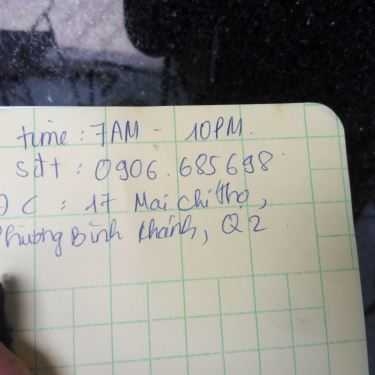 time : 7AM - 10PM.
sđt : 0906.685698
ĐC : 17 Mai Chí Thọ,
Phường Bình Khánh, Q2